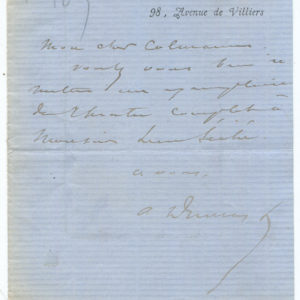 98, Avenue de Villiers
Mon cher Calmann
voulez vous bien re
mettre un exemplaire
du théatre complet à
Monsieur Léon Séché
a vous,